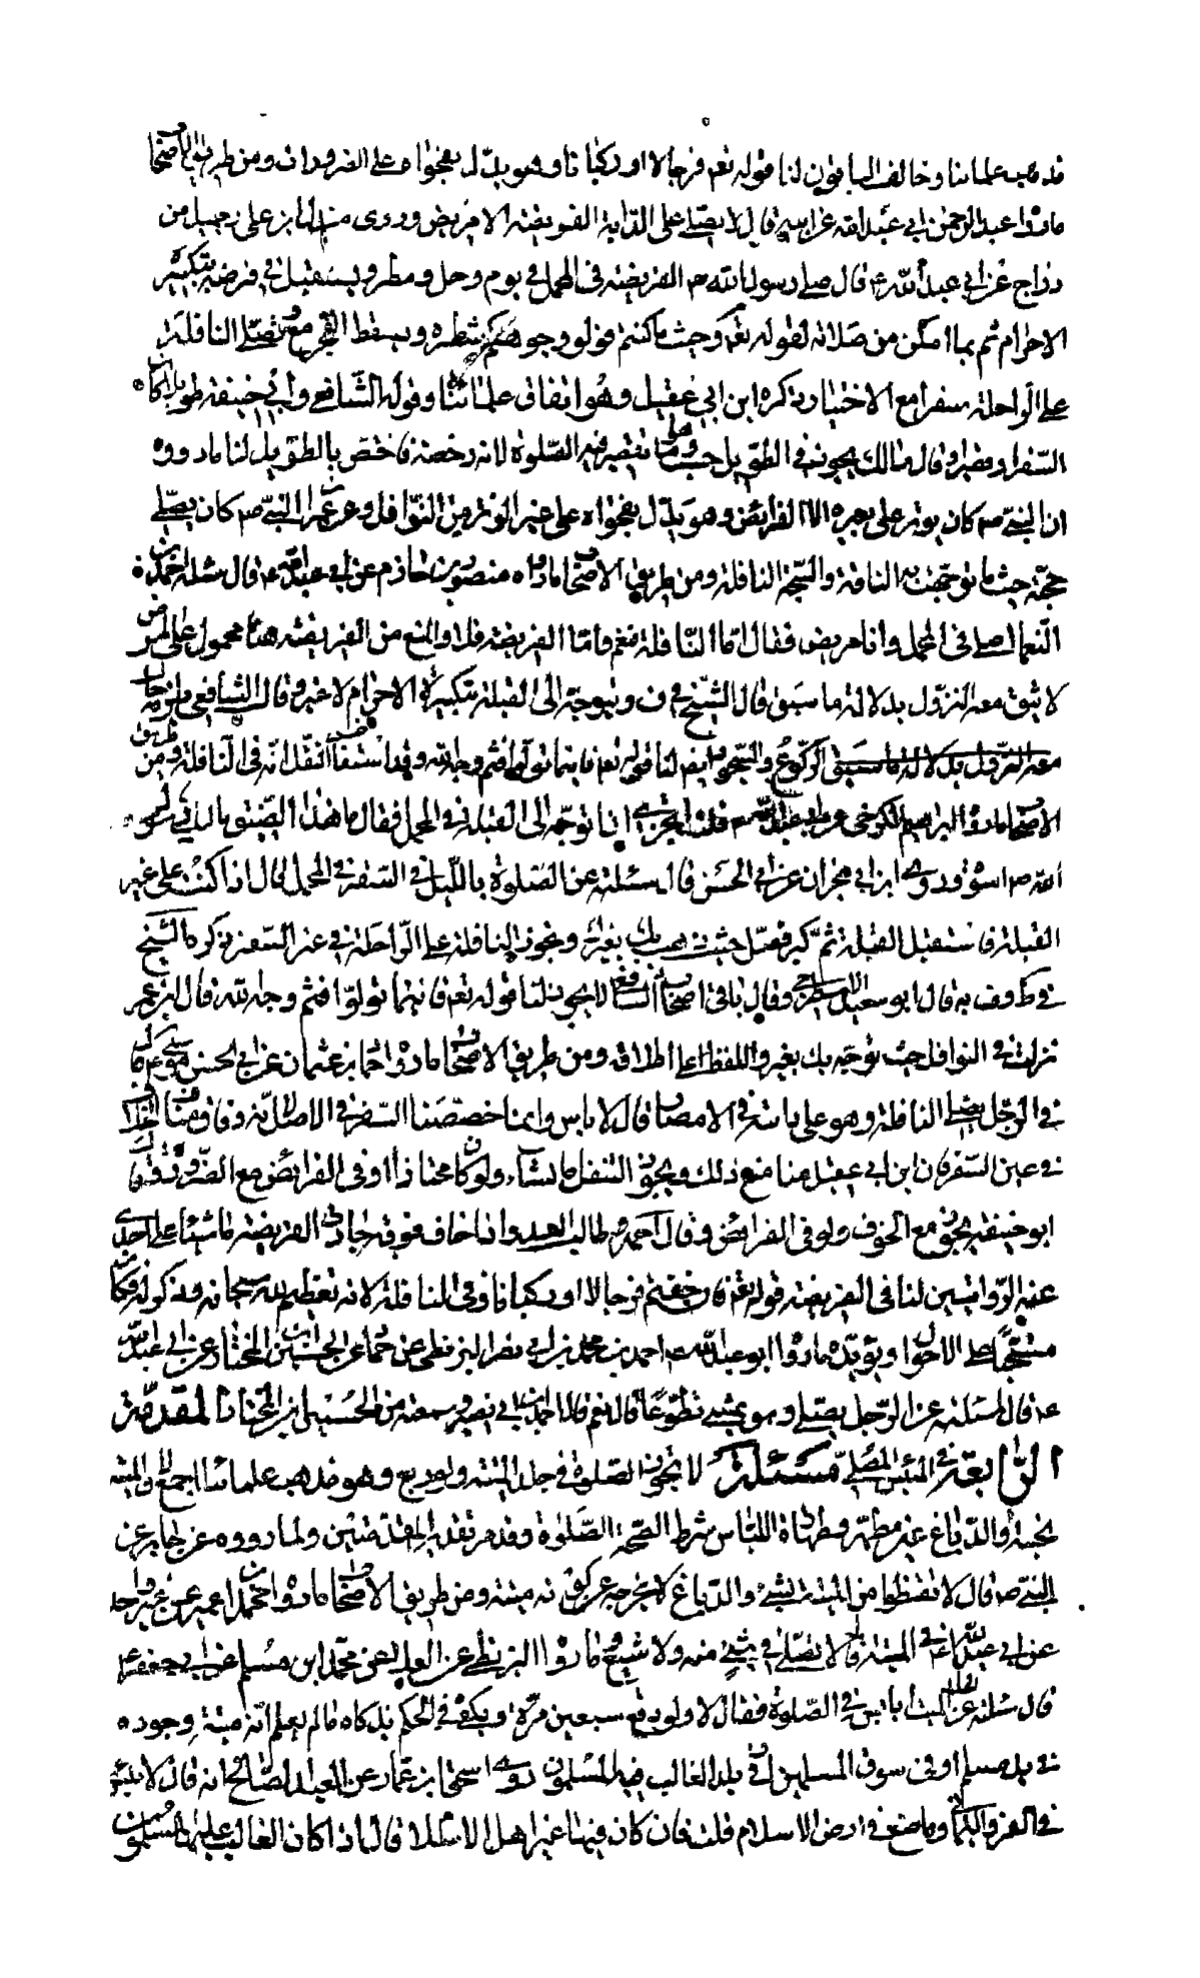 قد ذهب علمائنا وخالف الباقون لنا قوله تعم فرجالا او ركبانا وهو يدل بفحواه على الضرورات ومن طريق الاصحاب
ما رواه عبد الرحمن بن ابي عبد الله عن ابي عبد الله قال لا يصلي على الدابة الفريضة الا مريض وروى مندل بن علي جميل بن
دراج عن ابي عبد الله ع قال صلى رسول الله ص الفريضة في المحمل في يوم وحل ومطر ويستقبل في فرضه بتكبير
الاحرام ثم بما امكن من صلاته لقوله تعم وحيث ما كنتم فولوا وجوهكم شطره ويسقط مع تصلى النافلة
على الراحلة سفرا مع الاختيار ذكره ابن ابي عقيل وهو اتفاق علمائنا وقول الشافعي وأبي حنيفة طويلا كان
السفر او قصيرا وقال مالك يجوز في الطويل تقصير فيه الصلوة لانه رخصة فاختص بالطويل لنا ما رووه
ان النبي ص كان يوتر على بعيره الا الفرائض وهو يدل بفحواه على غير الوتر من النوافل وعن عمر ان النبي ص كان يصلي
حيث ما توجهت به الناقة والسبحة النافلة ومن طريق الاصحاب ما رواه منصور بن حازم عن ابي عبد الله ع قال سئله احمد بن
النعمان اصلي في المحمل وانا مريض فقال اما النافلة فنعم واما الفريضة فلا والمنع من الفريضة هنا محمول على المرض
لا يشق معه النزول بدلالة ما سبق قال الشيخ في ف ويتوجه الى القبلة بتكبيرة الاحرام لا غير وقال الشافعي يلزمه حال
الركوع والسجود ايضا لنا قوله تعم فاينما تولوا فثم وجه الله وقد استفاض النقل انه في النافلة ومن طريق
الاصحاب ما رواه ابراهيم الكرخي عن ابي عبد الله قلت اني اتوجه الى القبلة في المحمل فقال ما هذا الضيق ما لك في رسول
الله ص اسوة وروى ابن ابي نجران عن ابي الحسن قال سئلته عن الصلوة بالليل في السفر في المحمل قال اذا كنت على غير
القبلة فاستقبل القبلة ثم كبر فصل حيث ذهب بك بعيرك ويجوز النافلة على الراحلة في غير السفر ذكره الشيخ
في ط وف وبه قال ابو سعيد الاصطخري وقال باقي اصحاب الشافعي لا يجوز لنا قوله تعم فاينما تولوا فثم وجه الله قال ابن عمر
نزلت في النوافل حيث توجه بك بعيرك واللفظ على اطلاقه ومن طريق الاصحاب ما رواه حماد بن عثمان عن ابي الحسن موسى ع قال
في الرجل يصلي النافلة وهو على دابته في الامصار قال لا بأس وانما خصصنا السفر في الاصل لانه وفاق وهنا الخلاف
في غير السفر فان ابن ابي عقيل منا منع ذلك ويجوز التنفل ماشيا ولو كان مختارا وفي الفرائض مع الضرورة وقال
ابو حنيفة يجوز مع الخوف ولو في الفرائض وقال احمد طالب العدو اذا خاف فوته جاز الفريضة ماشيا على احدى
عنه الروايتين لنا في الفريضة قوله تعم فان خفتم فرجالا او ركبانا وفي النافلة لانه تعظيم لله سبحانه وذكر له فكان
مشروعا على الاحوال ويؤيده ما رواه ابو عبد الله احمد بن محمد بن ابي نصر البزنطي عن حماد عن الحسين بن المختار عن ابي عبد الله
ع قال سئلته عن الرجل يصلي وهو يمشي تطوعا قال نعم قال احمد بن ابي نصر وسمعته من الحسين بن المختار المقدمة
الرابعة في لباس المصلي مسئلة لا تجوز الصلوة في جلد الميتة ولو دبغ وهو مذهب علمائنا اجمع لان الميتة
نجسة والدباغ غير مطهر وطهارة اللباس شرط لصحة الصلوة وقد مر تقدير المقدمتين ولما رووه عن جابر عن
النبي ص قال لا تنتفعوا من الميتة بشيء والدباغ لا يخرجه عن كونه ميتة ومن طريق الاصحاب ما رواه محمد بن ابي عمير عن غير واحد
عن ابي عبد الله ع في الميتة قال لا تصل في شيء منه ولا شسع وما رواه البزنطي عن العلا عن محمد بن مسلم عن ابي جعفر ع
قال سئلته عن الجلد الميت أيلبس في الصلوة فقال لا ولو دبغ سبعين مرة ويكفي في الحكم بذكاته ما لم يعلم انه ميتة وجوده
في يد مسلم او في سوق المسلمين او في بلد الغالب فيه المسلمون روى اسحق بن عمار عن العبد الصالح انه قال لا بأس
في الفرو اليماني وما صنع في ارض الاسلام قلت فان كان فيها غير اهل الاسلام قال اذا كان الغالب عليها المسلمون